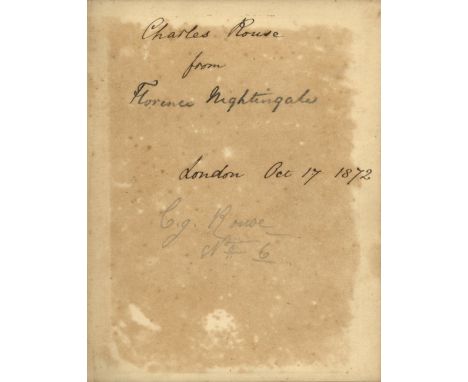 Charles Rouse
from
Florence Nightingale
London Oct 17 1872
C.g. Rouse
6